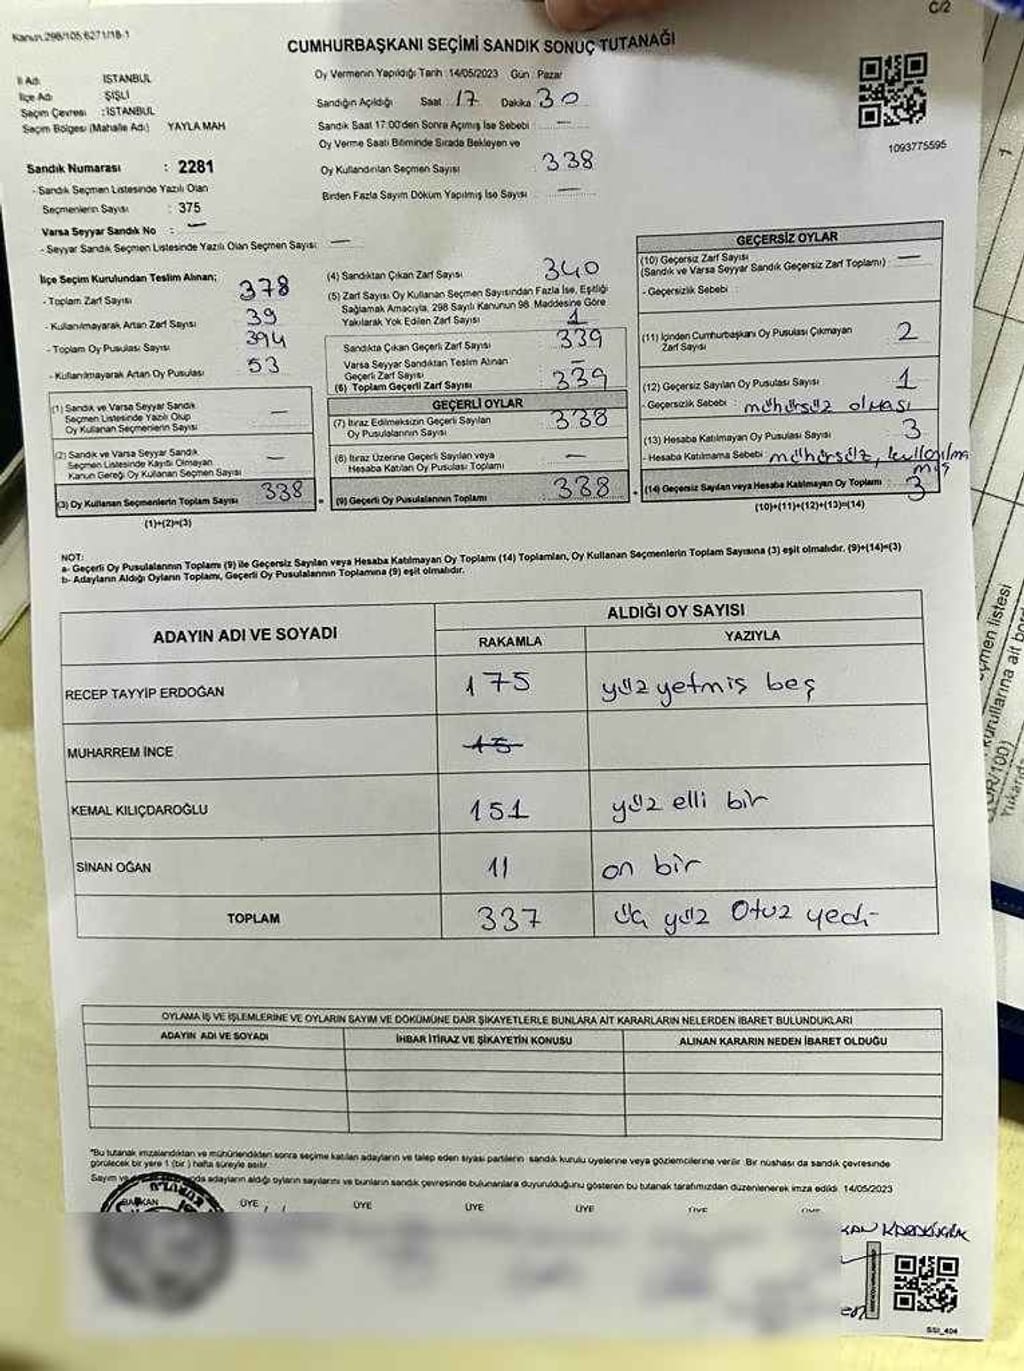 C/2
Kanun.298/105.6271/18-1
CUMHURBAŞKANI SEÇİMİ SANDIK SONUÇ TUTANAĞI
İl Adı : İSTANBUL
İlçe Adı : ŞİŞLİ
Seçim Çevresi : İSTANBUL
Seçim Bölgesi (Mahalle Adı) YAYLA MAH
Sandık Numarası : 2281
- Sandık Seçmen Listesinde Yazılı Olan
Seçmenlerin Sayısı : 375
Varsa Seyyar Sandık No : —
- Seyyar Sandık Seçmen Listesinde Yazılı Olan Seçmen Sayısı: —
Oy Vermenin Yapıldığı Tarih : 14/05/2023 Gün : Pazar
Sandığın Açıldığı Saat 17 Dakika 30
Sandık Saat 17:00'den Sonra Açımış İse Sebebi : —
Oy Verme Saati Bitiminde Sırada Bekleyen ve
Oy Kullandırılan Seçmen Sayısı : 338
Birden Fazla Sayım Döküm Yapılmış İse Sayısı : —
1093775595
İlçe Seçim Kurulundan Teslim Alınan;
- Toplam Zarf Sayısı 378
- Kullanılmayarak Artan Zarf Sayısı 39
- Toplam Oy Pusulası Sayısı 394
- Kullanılmayarak Artan Oy Pusulası 53
(1) Sandık ve Varsa Seyyar Sandık
Seçmen Listesinde Yazılı Olup
Oy Kullanan Seçmenlerin Sayısı —
(2) Sandık ve Varsa Seyyar Sandık
Seçmen Listesinde Kayıtlı Olmayan
Kanun Gereği Oy Kullanan Seçmen Sayısı —
(3) Oy Kullanan Seçmenlerin Toplam Sayısı 338
(1)+(2)=(3)
(4) Sandıktan Çıkan Zarf Sayısı 340
(5) Zarf Sayısı Oy Kullanan Seçmen Sayısından Fazla İse, Eşitliği
Sağlamak Amacıyla, 298 Sayılı Kanunun 98. Maddesine Göre
Yakılarak Yok Edilen Zarf Sayısı 1
Sandıkta Çıkan Geçerli Zarf Sayısı 339
Varsa Seyyar Sandıktan Teslim Alınan
Geçerli Zarf Sayısı —
(6) Toplam Geçerli Zarf Sayısı 339
GEÇERLİ OYLAR
(7) İtiraz Edilmeksizin Geçerli Sayılan
Oy Pusulalarının Sayısı 338
(8) İtiraz Üzerine Geçerli Sayılan veya
Hesaba Katılan Oy Pusulası Toplamı —
(9) Geçerli Oy Pusulalarının Toplamı 338
GEÇERSİZ OYLAR
(10) Geçersiz Zarf Sayısı —
(Sandık ve Varsa Seyyar Sandık Geçersiz Zarf Toplamı)
- Geçersizlik Sebebi :
(11) İçinden Cumhurbaşkanı Oy Pusulası Çıkmayan
Zarf Sayısı 2
(12) Geçersiz Sayılan Oy Pusulası Sayısı 1
- Geçersizlik Sebebi : mühürsüz olması
(13) Hesaba Katılmayan Oy Pusulası Sayısı 3
- Hesaba Katılmama Sebebi mühürsüz, kullanılma
mış
(14) Geçersiz Sayılan veya Hesaba Katılmayan Oy Toplamı : 3
(10)+(11)+(12)+(13)=(14)
NOT:
a- Geçerli Oy Pusulalarının Toplamı (9) ile Geçersiz Sayılan veya Hesaba Katılmayan Oy Toplamı (14) Toplamları, Oy Kullanan Seçmenlerin Toplam Sayısına (3) eşit olmalıdır. (9)+(14)=(3)
b- Adayların Aldığı Oyların Toplamı, Geçerli Oy Pusulalarının Toplamına (9) eşit olmalıdır.
ADAYIN ADI VE SOYADI
ALDIĞI OY SAYISI
RAKAMLA YAZIYLA
RECEP TAYYİP ERDOĞAN 175 yüz yetmiş beş
MUHARREM İNCE 15
KEMAL KILIÇDAROĞLU 151 yüz elli bir
SİNAN OĞAN 11 on bir
TOPLAM 337 üç yüz Otuz yedi
OYLAMA İŞ VE İŞLEMLERİNE VE OYLARIN SAYIM VE DÖKÜMÜNE DAİR ŞİKAYETLERLE BUNLARA AİT KARARLARIN NELERDEN İBARET BULUNDUKLARI
ADAYIN ADI VE SOYADI İHBAR İTİRAZ VE ŞİKAYETİN KONUSU ALINAN KARARIN NEDEN İBARET OLDUĞU
"Bu tutanak imzalandıktan ve mühürlendikten sonra seçime katılan adayların ve talep eden siyasi partilerin sandık kurulu üyelerine veya gözlemcilerine verilir. Bir nüshası da sandık çevresinde
görülecek bir yere 1 (bir) hafta süreyle asılır.
adayların aldığı oyların sayılarını ve bunların sandık çevresinde bulunanlara duyurulduğunu gösteren bu tutanak tarafımızdan düzenlenerek imza edildi. 14/05/2023
BAŞKAN ÜYE ÜYE ÜYE ÜYE ÜYE ÜYE
SSI_404
çmen listesi
kurullarına ait